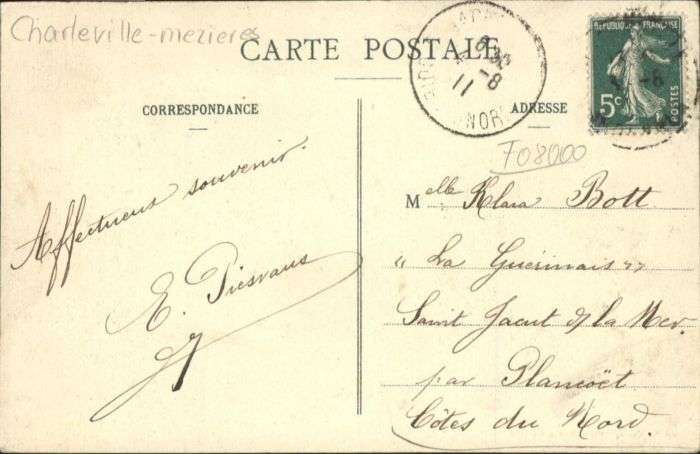 Charleville-mezieres
CARTE POSTALE
CORRESPONDANCE
ADRESSE
RÉPUBLIQUE FRANÇAISE
5c
POSTES
-8
11
-8
F08000
Affectueux souvenir.
E.
Melle Klara Bott
"La Guérinais"
Saint Jacut d/ la Mer.
par Plancoët
Côtes du Nord.